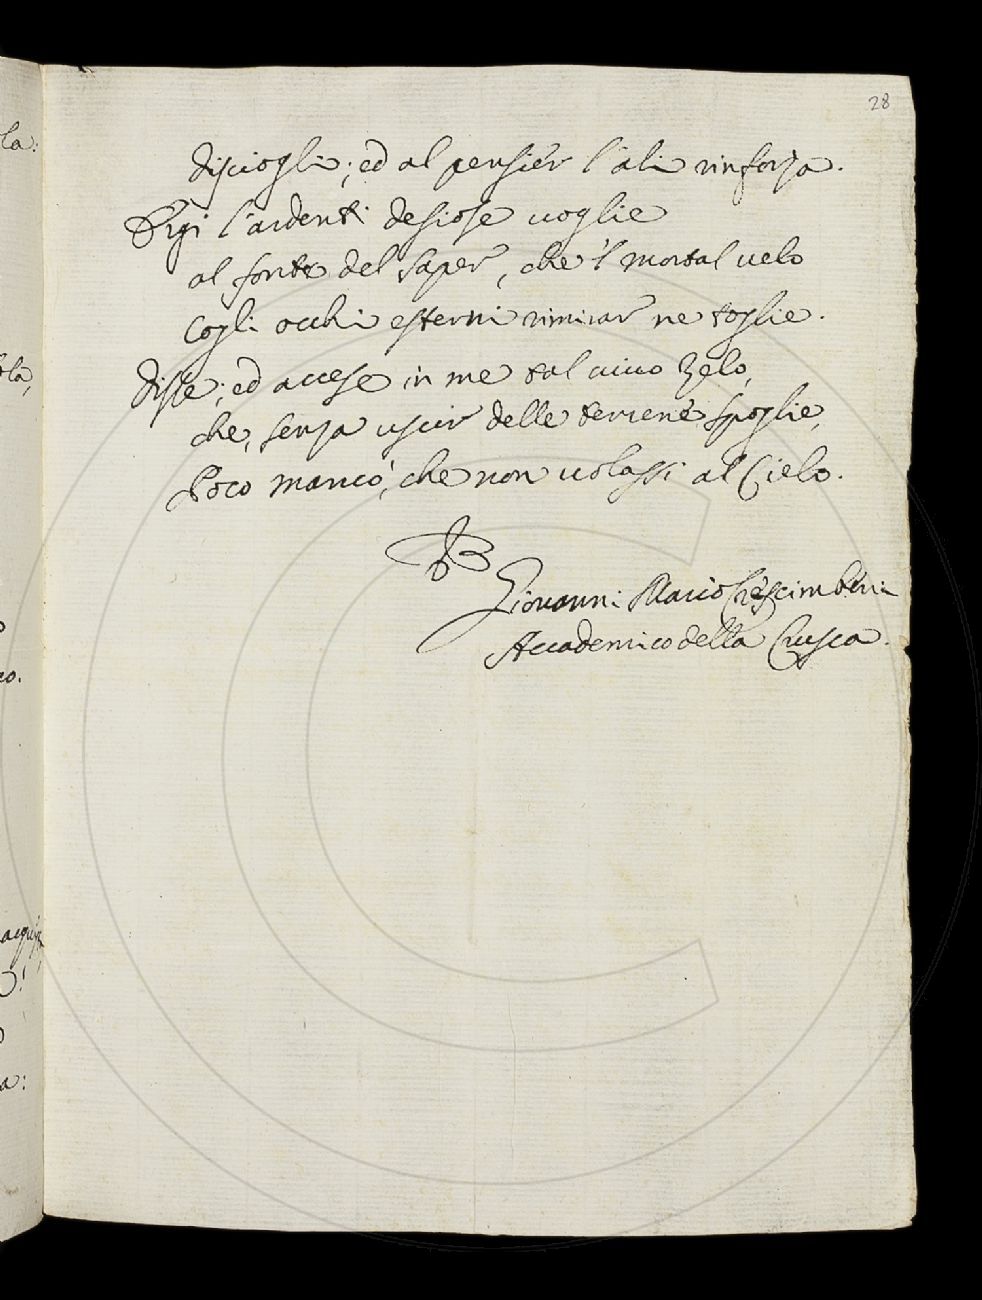 28
disciogli; ed al pensier l'ali rinforza.
Ergi l'ardenti desiose uoglie
al fonte del saper, che 'l mortal uelo
cogli occhi esterni rimirar ne toglie.
disse; ed accese in me tal uiuo Zelo,
che, senza uscir delle terrene spoglie,
Poco mancò, che non uolassi al Cielo.
Giovanni Mario Crescimbeni
Accademico della Crusca.